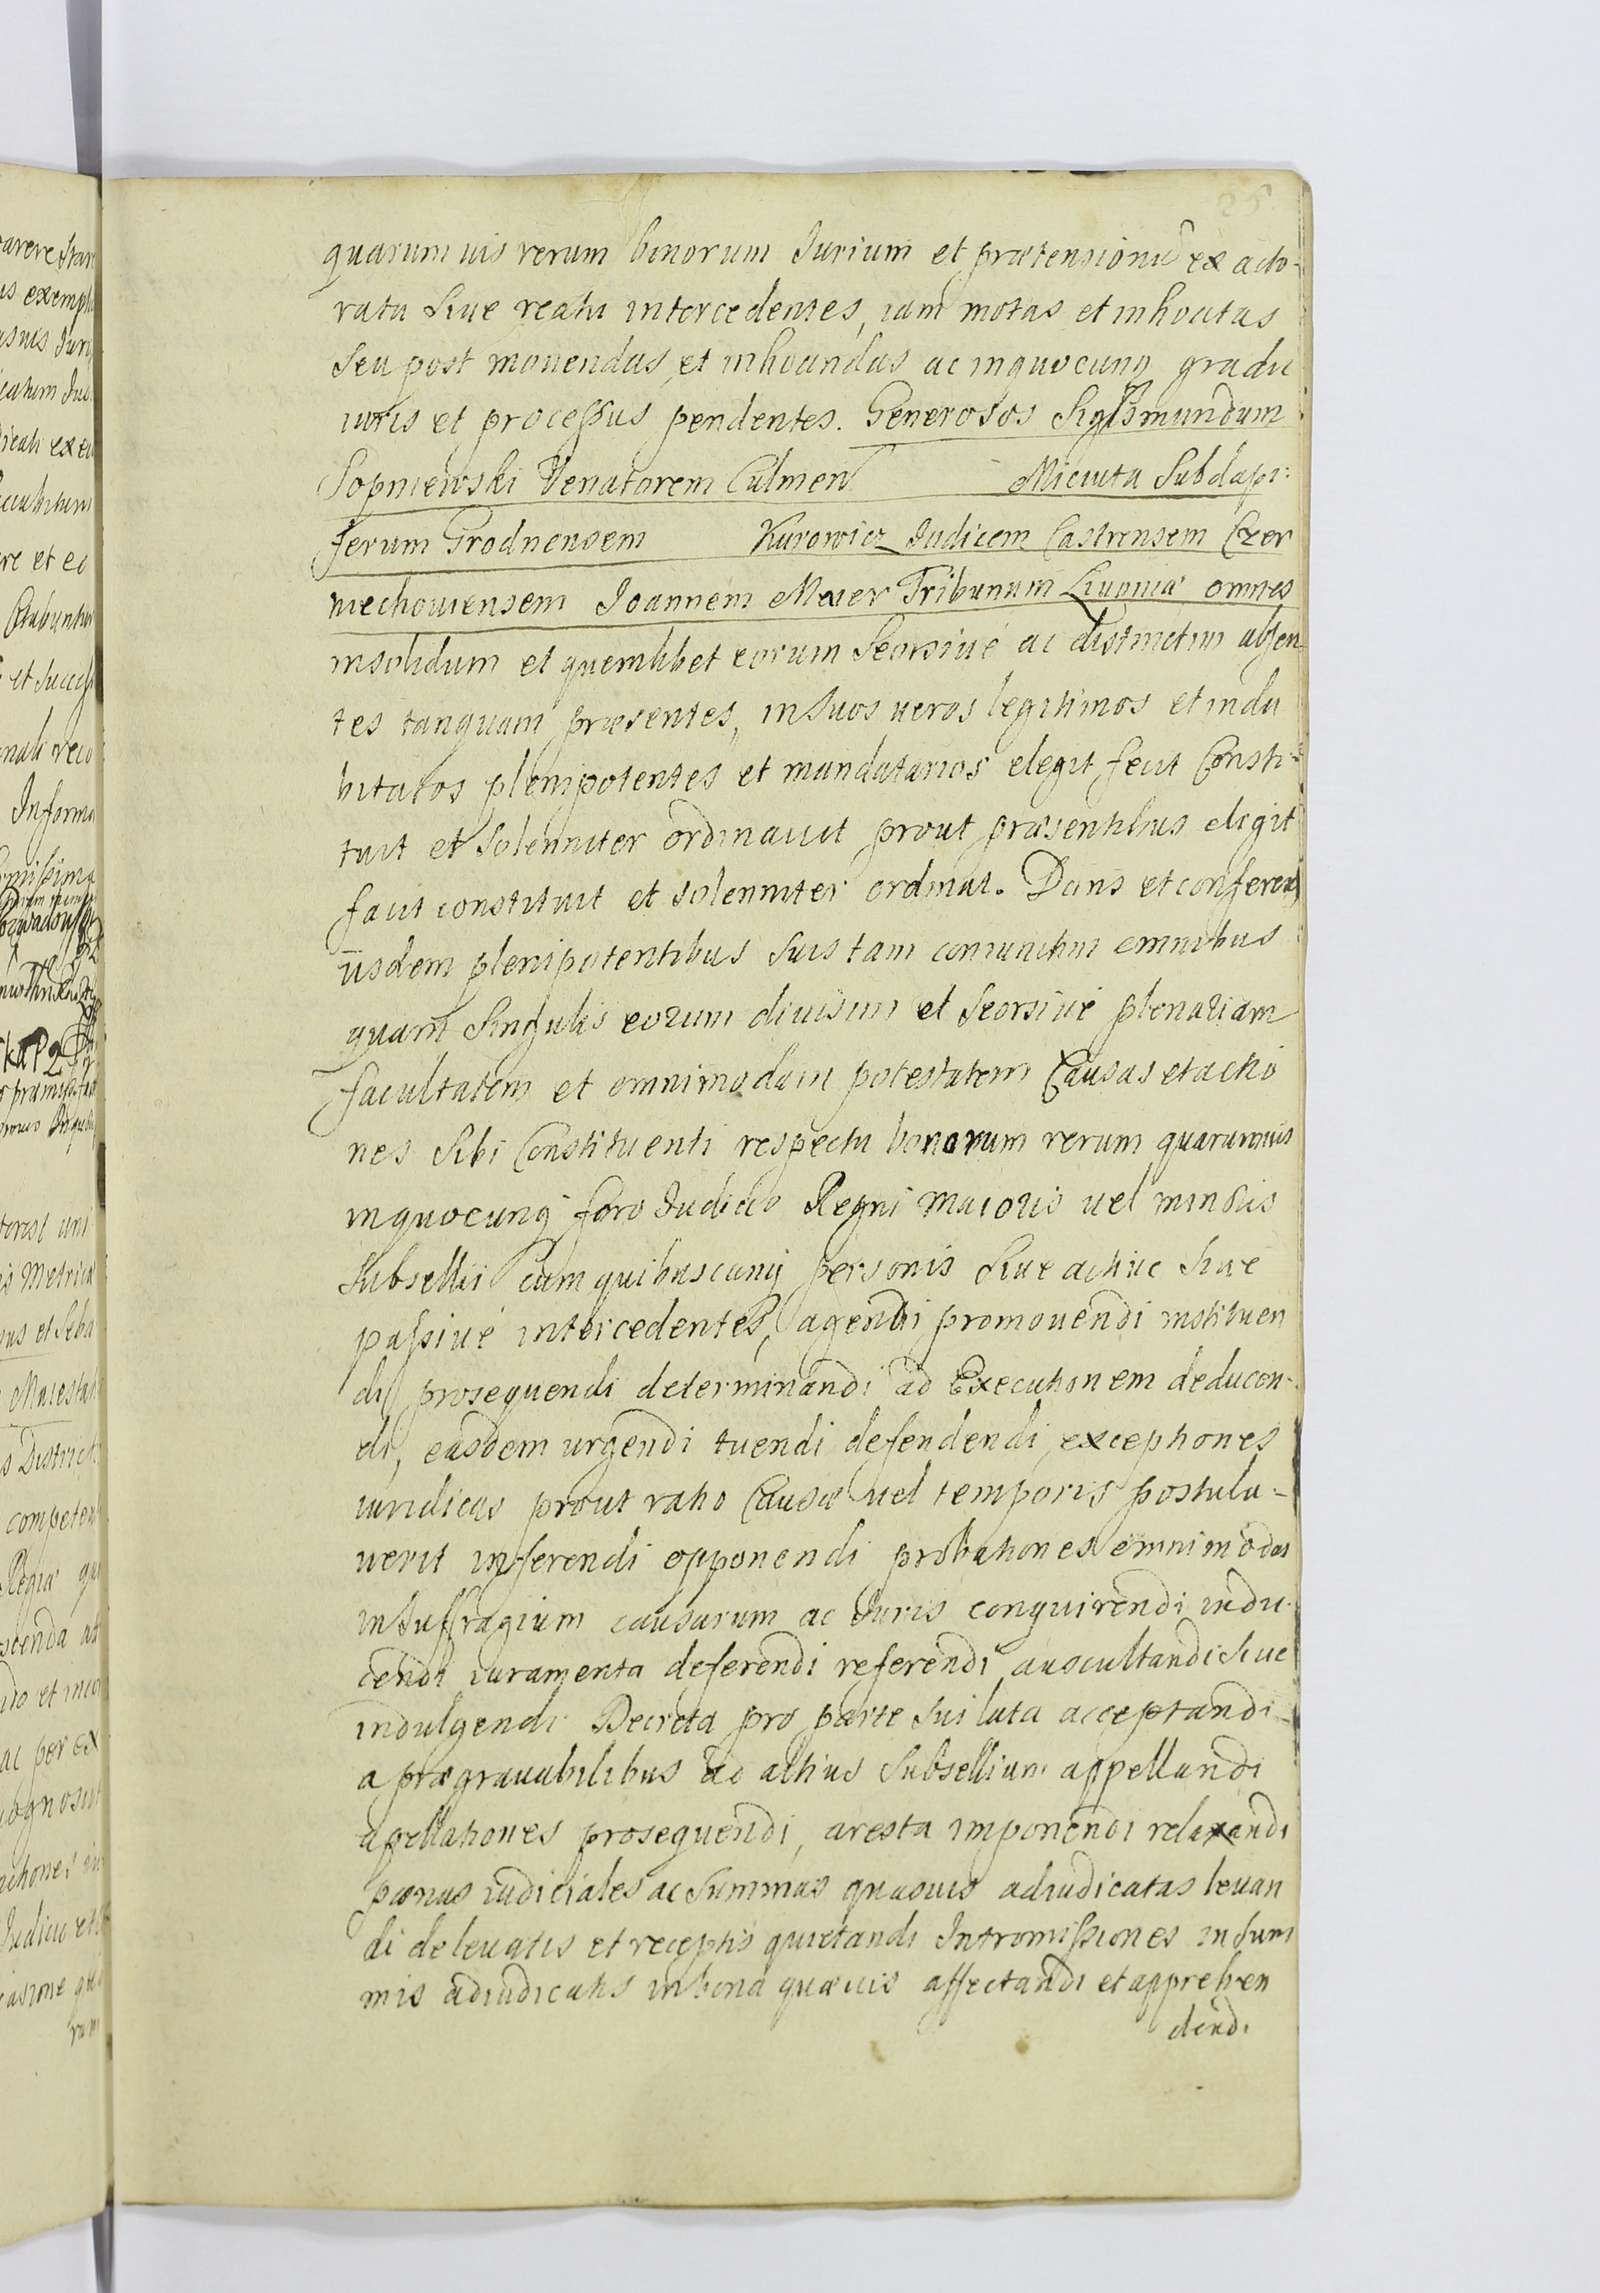 25
quarumuis rerum bonorum Jurium et prætensionū ex acto-
ratu siue reatu intercedentes, iam motas et inhoatas
seu post mouendas et inhoandas ac inquocunq gradu
iuris et processus pendentes. Generosos Sigismundum
Sopniewski Venatorem Culmen Miciuta Subdapi:
ferum Grodnensem Kurowicz Judicem Castrensem Czer
niechouiensem Joannem Meier Tribunum Liuoniæ omnes
insolidum et quemlibet eorum seorsiué ac distinctim absen
tes tanquam præsentes, insuos ueros legitimos et indu
bitatos plenipotentes et mandatarios elegit fecit Consti-
tuit et solenniter ordinauit prout præsentibus eligit
facit constituit et solenniter ordinat. Dans et conferens
iisdem plenipotentibus suis tam coniunctim omnibus
quam singulis eorum diuisim et seorsiué plenariam
facultatem et omnimodam potestatem Causas etactio
nes sibi Constituenti respectu bonorum rerum quarumuis
inquocunq foro Judicio Regni maioris uel minoris
Subsellii cum quibuscunq personis siue actiue siue
passiué intercedentes, agendi promouendi instituen
di prosequendi determinandi ad Executionem deducen-
di, easdem urgendi tuendi defendendi, exceptiones
iuridicas prout ratio Causæ uel temporis postula-
uerit inferendi opponendi probationes omnimodas
insuffragium causarum ac Juris conquirendi indu-
cendi iuramenta deferendi referendi auscultandi siue
indulgendi Decreta pro parte sui lata acceptandi
a prægrauabilibus ad altius Subsellium appellandi
apellationes prosequendi, aresta imponendi relaxandi
pœnas iudiciales ac summas quasuis adiudicatas leuan
di deleuatis et receptis quietandi Intromissiones insum
mis adiudicatis inbona quæuis affectandi et apprehen
dendi